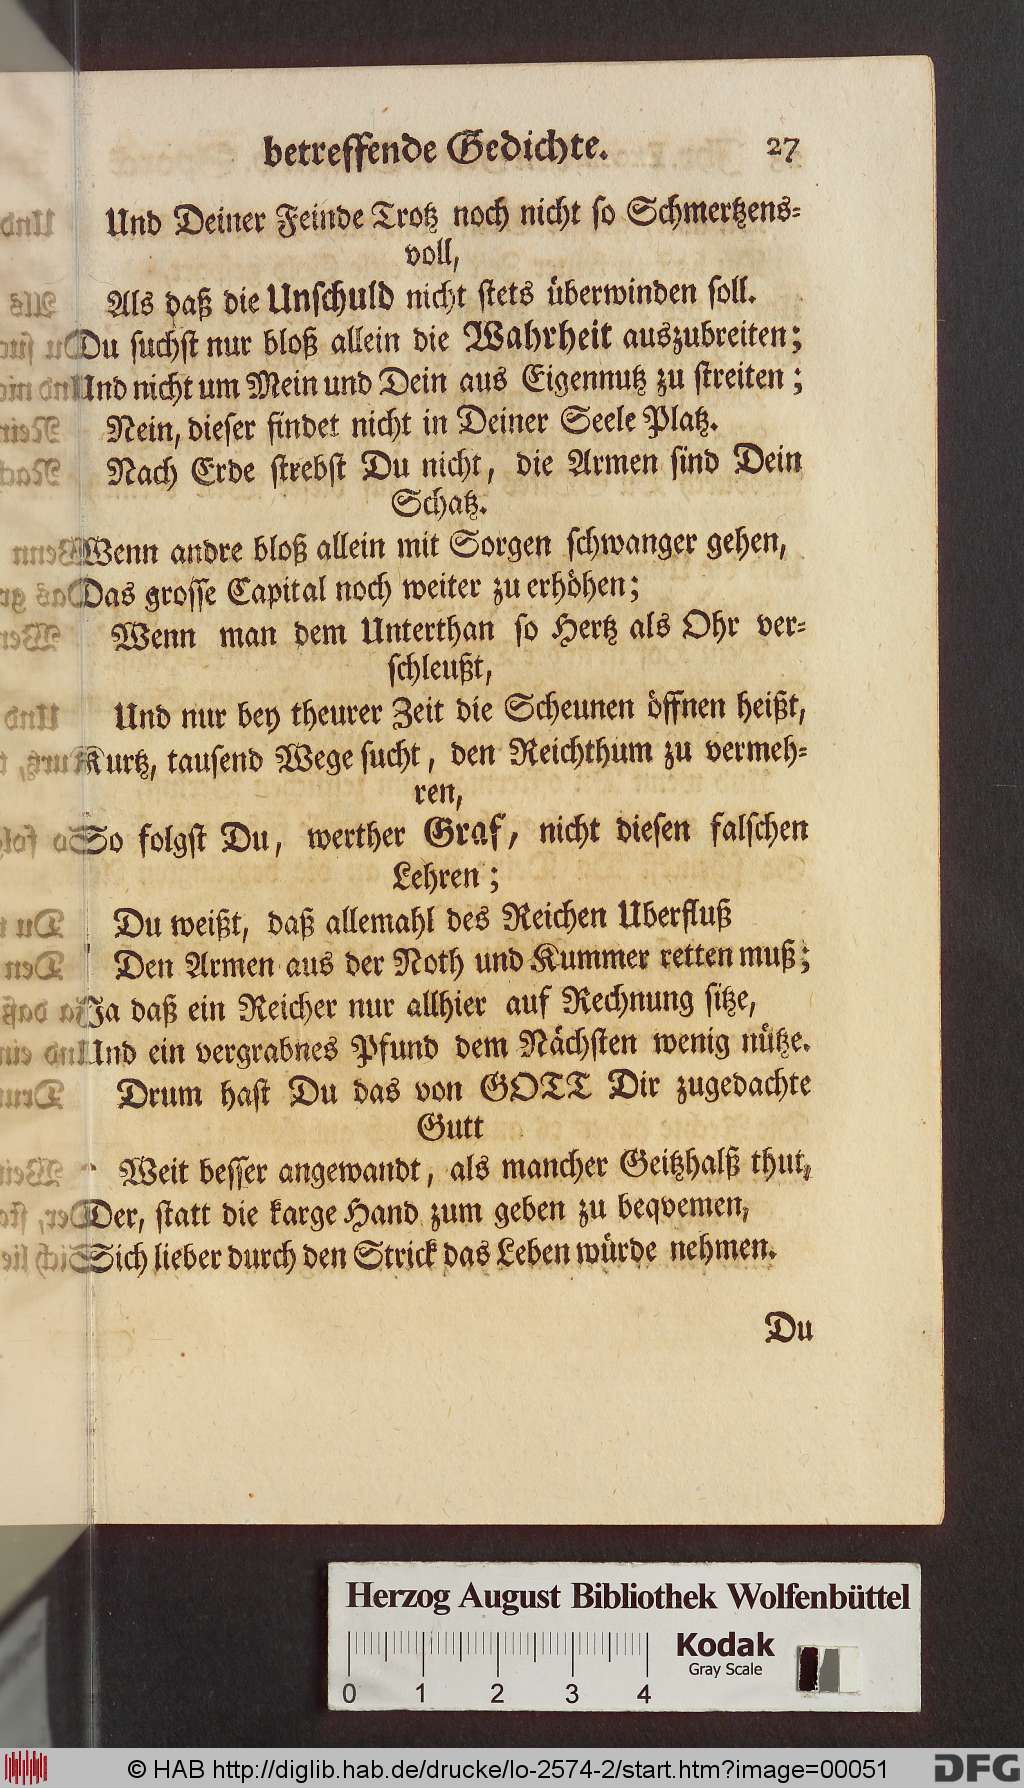 betreffende Gedichte. 27
Und Deiner Feinde Trotz noch nicht so Schmertzens-
voll,
Als daß die Unschuld nicht stets überwinden soll.
Du suchst nur bloß allein die Wahrheit auszubreiten;
Und nicht um Mein und Dein aus Eigennutz zu streiten;
Nein, dieser findet nicht in Deiner Seele Platz.
Nach Erde strebst Du nicht, die Armen sind Dein
Schatz.
Wenn andre bloß allein mit Sorgen schwanger gehen,
Das grosse Capital noch weiter zu erhöhen;
Wenn man dem Unterthan so Hertz als Ohr ver-
schleußt,
Und nur bey theurer Zeit die Scheunen öffnen heißt,
Kurtz, tausend Wege sucht, den Reichthum zu vermeh-
ren,
So folgst Du, werther Graf, nicht diesen falschen
Lehren;
Du weißt, daß allemahl des Reichen Uberfluß
Den Armen aus der Noth und Kummer retten muß;
Ja daß ein Reicher nur allhier auf Rechnung sitze,
Und ein vergrabnes Pfund dem Nächsten wenig nütze.
Drum hast Du das von GOTT Dir zugedachte
Gutt
Weit besser angewandt, als mancher Geitzhalß thut,
Der, statt die karge Hand zum geben zu beqvemen,
Sich lieber durch den Strick das Leben würde nehmen.
Du
Herzog August Bibliothek Wolfenbüttel
Kodak
Gray Scale
0 1 2 3 4
© HAB http://diglib.hab.de/drucke/lo-2574-2/start.htm?image=00051
DFG